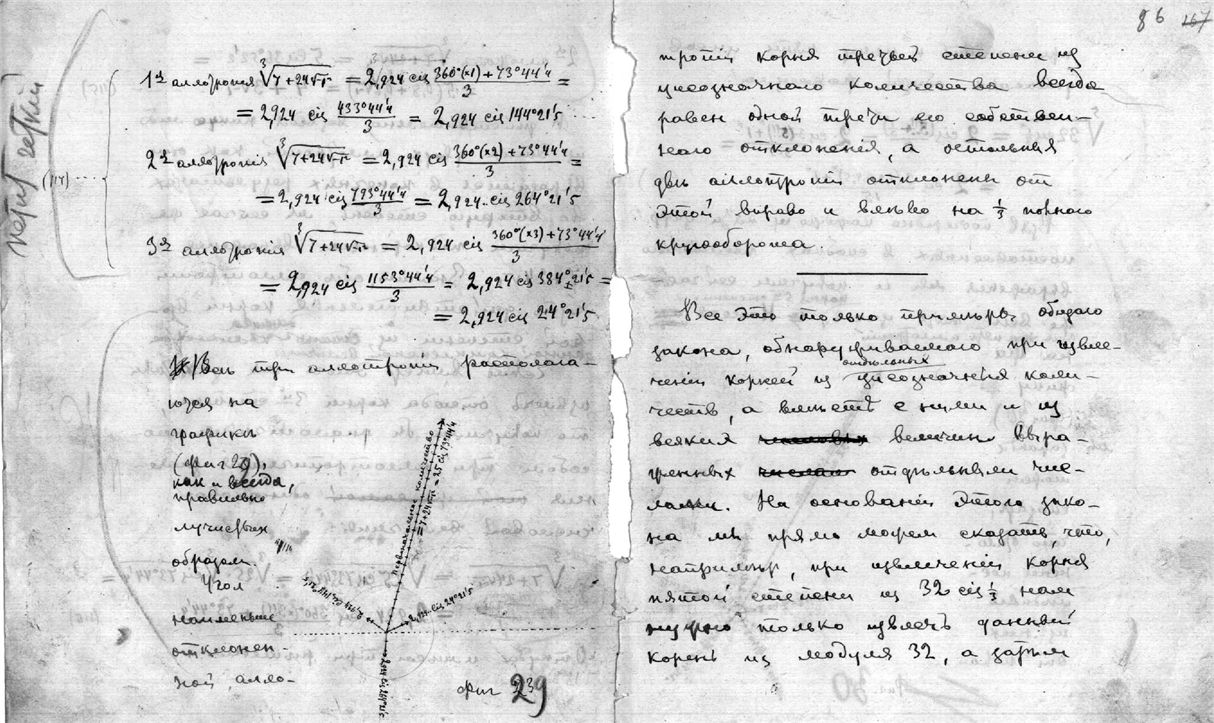 1ая аллотропія ∛(7+24√-1) = 2,924 cis (360°(×1)+73°44'4)/3 =
= 2,924 cis 433°44'4/3 = 2,924 cis 144°21'5
(114)
2ая аллотропія ∛(7+24√-1) = 2,924 cis (360°(×2)+73°44'4)/3 =
= 2,924 cis 793°44'4/3 = 2,924 cis 264°21'5
3ая аллотропія ∛(7+24√-1) = 2,924 cis (360°(×3)+73°44'4)/3
= 2,924 cis 1153°44'4/3 = 2,924 cis 384°21'5 =
= 2,924 cis 24°21'5
Всѣ три аллотропіи располага-
ются на
графикѣ
(фиг 29),
как и всегда,
правильно
лучевых
образом.
Угол
наименьше
отклонен-
ной алло-
первоначальное количество
=7+24√-1 = 25 cis 73°44'4
2,924 cis 24°21'5
2,924 cis 144°21'5
2,924 cis 264°21'5
Фиг 29
86 167
тропіи корня третьей степени из
цисозначнаго количества всегда
равен одной трети его собствен-
наго отклоненія, а остальныя
двѣ аллотропіи отклонены от
этой вправо и влѣво на ⅓ полнаго
кругооборота.
Все это только примѣръ общаго
закона, обнаруживаемаго при извле-
ченіи корней из отдѣльных цисозначных коли-
честв, а вмѣстѣ с ними и из
всяких величин выра-
женных отдѣльными чис-
лами. На основаніи этого зако-
на мы прямо можем сказать, что,
напримѣр, при извлеченіи корня
пятой степени из 32 cis ⅓ нам
нужно только извлечь данный
корень из модуля 32, а затѣм